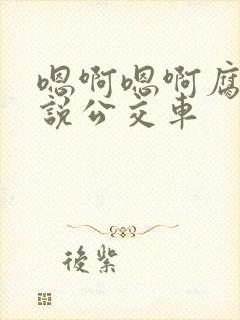 嗯啊嗯啊腐
說公交車
後紫